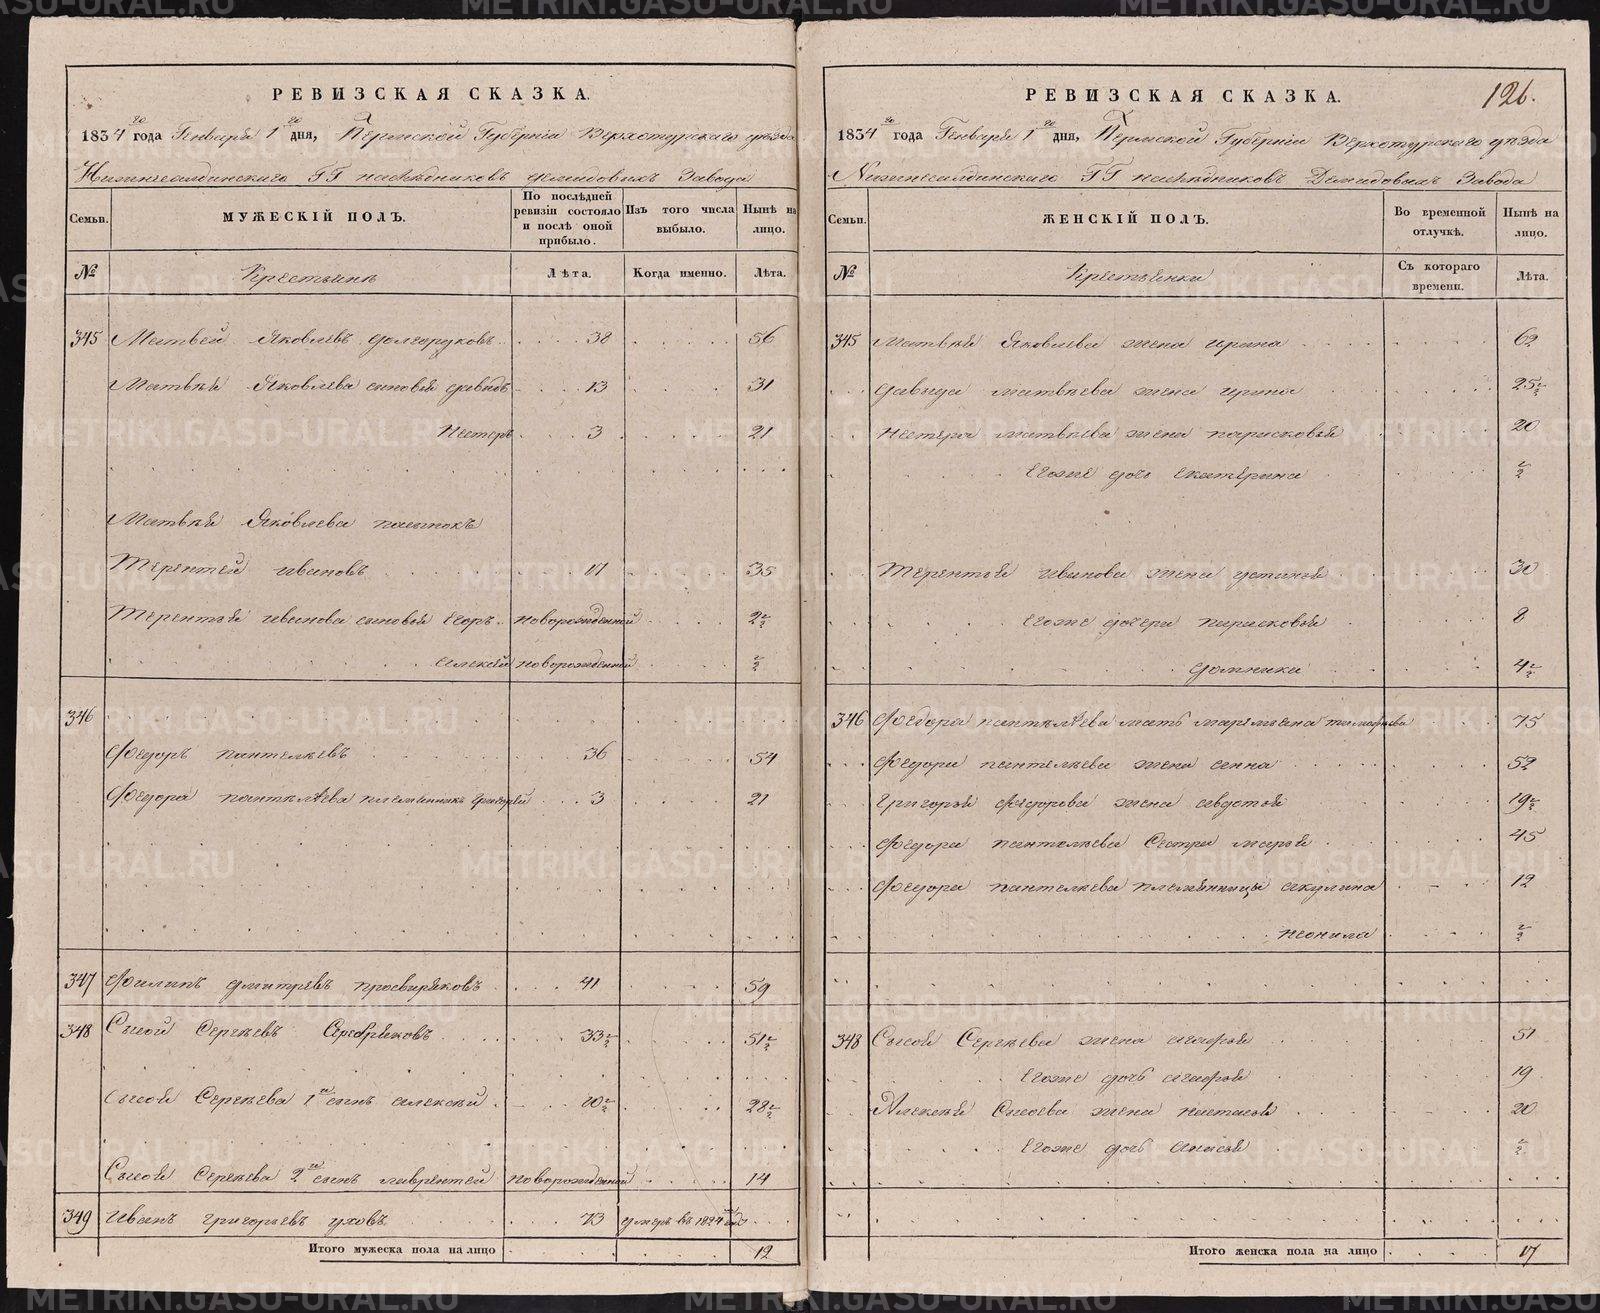 РЕВИЗСКАЯ СКАЗКА.
1834 го года Генваря 1 го дня, Пермской Губерніи Верхотурскаго уѣзда
Нижнесалдинскаго ГГ наслѣдниковъ Демидовыхъ Завода
Семьи.
МУЖЕСКІЙ ПОЛЪ.
По послѣдней ревизіи состояло и послѣ оной прибыло.
Изъ того числа выбыло.
Нынѣ на лицо.
№ Крестьянъ Лѣта. Когда именно. Лѣта.
345 Матвей Яковлевъ Долгоруковъ 38 56
Матвѣя Яковлева сыновья Давыдъ 13 31
Нестеръ 3 21
Матвѣя Яковлева пасынокъ
Терентей Ивановъ 17 35
Терентья Иванова сыновья Егоръ новорожденной 2 ½
Алексѣй новорожденной ½
346
Федоръ Пантелѣевъ 36 54
Федора Пантелѣева племянникъ Григорей 3 21
347 Филипъ Дмитрѣвъ Просвиряковъ 41 59
348 Сысой Сергѣевъ Серебряковъ 33 ½ 51 ½
Сысоя Сергѣева 1 й сынъ Алексѣй 10 ½ 28 ½
Сысоя Сергѣева 2 й сынъ Лаврентей новорожденной 14
349 Иванъ Григорьевъ Уховъ 73 умеръ въ 1824 году
Итого мужеска пола на лицо 12
РЕВИЗСКАЯ СКАЗКА. 126.
1834 го года Генваря 1 го дня, Пермской Губерніи Верхотурскаго уѣзда
Нижнесалдинскаго ГГ наслѣдниковъ Демидовыхъ Завода
Семьи.
ЖЕНСКІЙ ПОЛЪ.
Во временной отлучкѣ.
Нынѣ на лицо.
№ Крестьянки Съ котораго времени. Лѣта.
345 Матвѣя Яковлева жена Ирина 62
Давыда Матвѣева жена Ирина 25 ½
Нестера Матвѣева жена Парасковья 20
Егоже дочь Екатерина ½
Терентья Иванова жена Устинья 30
Егоже дочери Парасковья 8
Домника 4 ½
346 Федора Пантелѣева мать Маремьена Тимофѣева 75
Федора Пантелѣева жена Анна 52
Григорья Федорова жена Авдотья 19 ½
Федора Пантелѣева Сестра Марья 45
Федора Пантелѣева племянницы Акулина 12
Неонила ½
348 Сысоя Сергѣева жена Агафья 51
Егоже дочь Агафья 19
Алексѣя Сысоева жена Настасья 20
Егоже дочь Анисья ½
Итого женска пола на лицо 17
METRIKI.GASO-URAL.RU